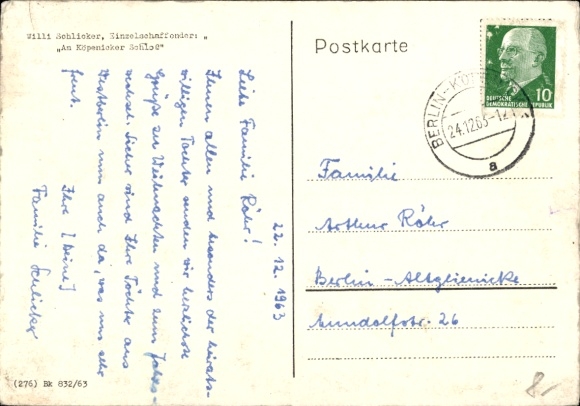 Willi Schlicker, Einzelschaffender: „
„An Köpenicker Schloß"
Postkarte
10
DEUTSCHE
DEMOKRATISCHE REPUBLIK
BERLIN-KÖ
24.12.63-12
a
22. 12. 1963
Liebe Familie Röhr!
Ihnen allen und besonders der heirats-
willigen Tochter senden wir herzlichste
Grüße zu Weihnachten und zum Jahres-
wechsel. Sicher sind Ihre Töchter aus
Westberlin nun auch da, was uns sehr
freut.
Ihre [Deine]
Familie Schlicker
Familie
Arthur Röhr
Berlin-Altglienicke
26
(276) Bk 832/63
8.-